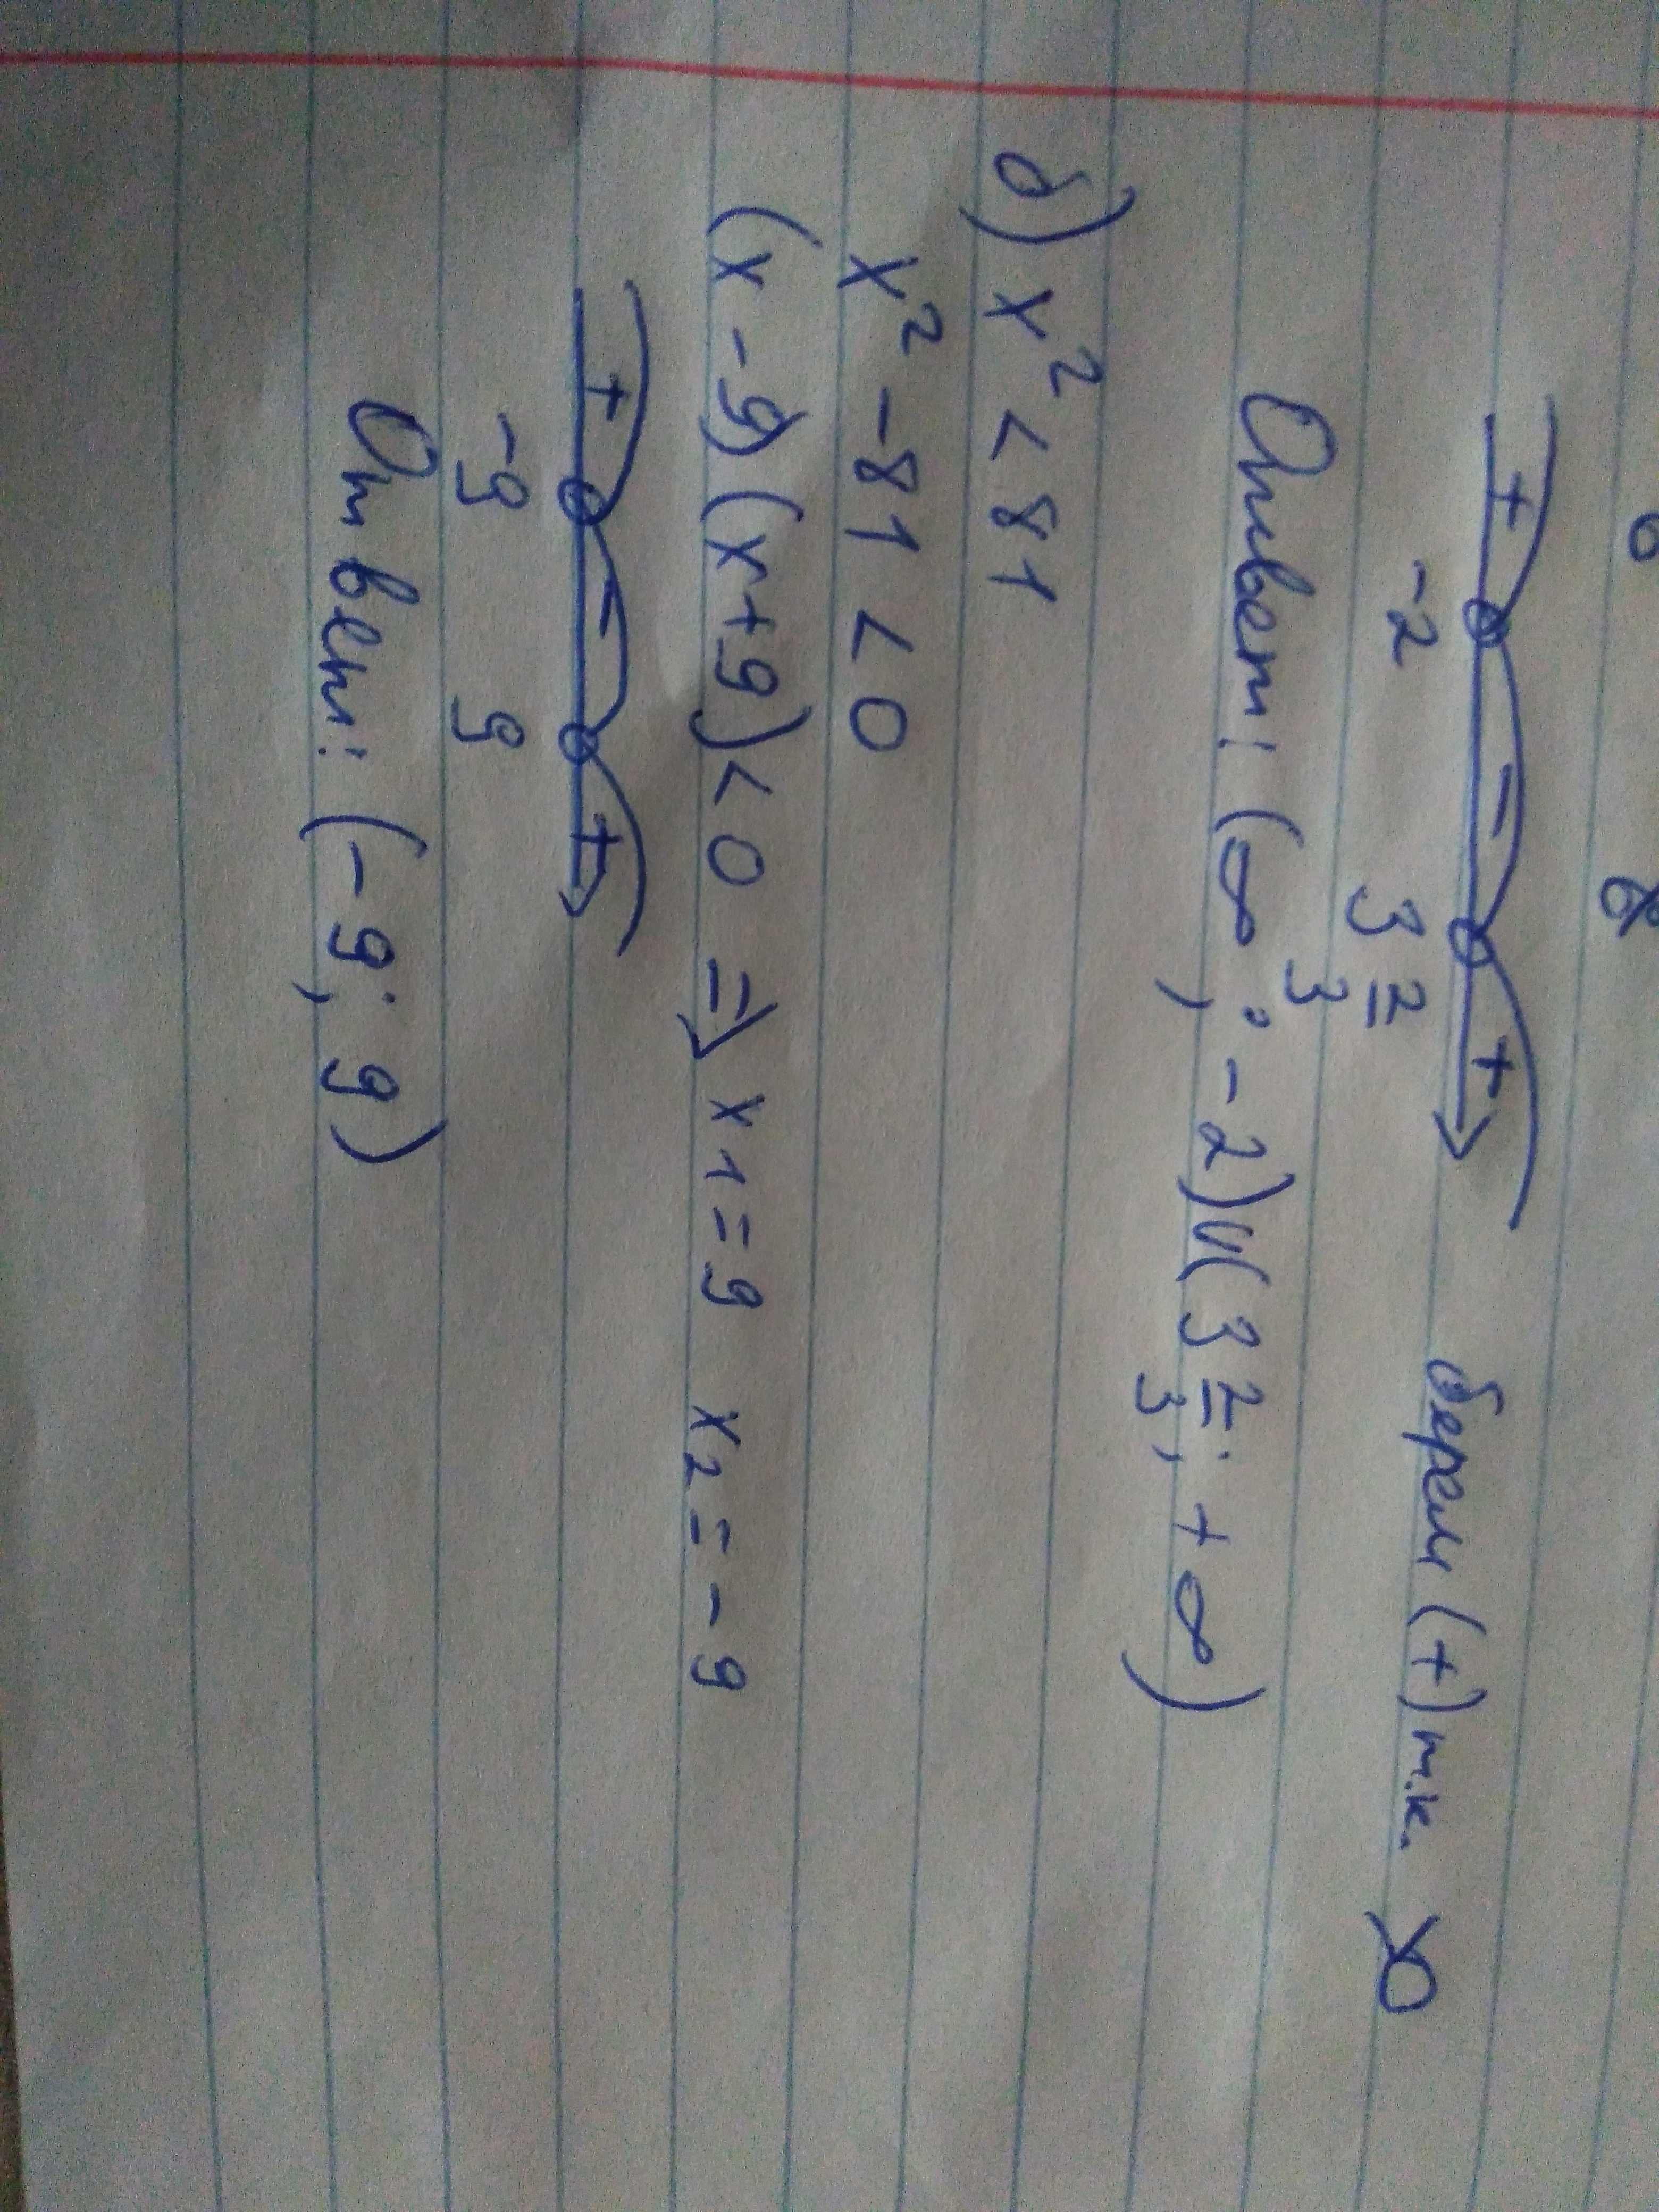 + - +
-2 3 2/3
берем (+) т.к. >0
Ответ: (∞; -2)U(3 2/3; +∞)
б) x² < 81
x² - 81 < 0
(x - 9)(x + 9) < 0 ⇒ x1 = 9 x2 = -9
+ - +
-9 9
Ответ: (-9; 9)